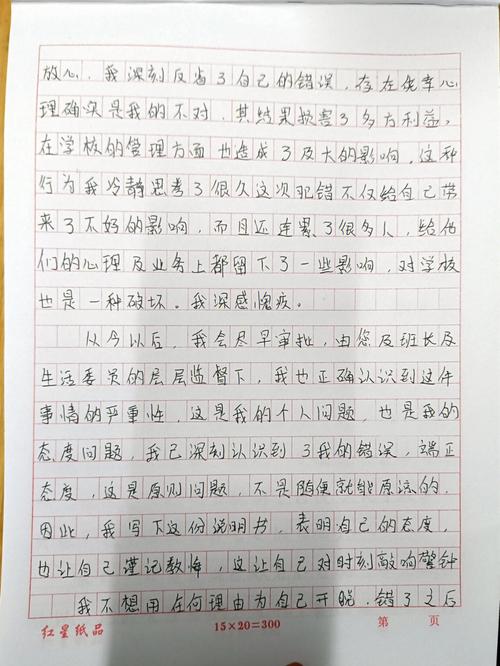 放心，我深刻反省了自己的错误，存在侥幸心
理确实是我的不对，其结果损害了多方利益。
在学校的管理方面也造成了及大的影响，这种
行为我冷静思考了很久这次犯错不仅给自己带
来了不好的影响，而且还连累了很多人，给他
们的心理及业务上都留下了一些影响，对学校
也是一种破坏。我深感愧疚。
从今以后，我会尽早审批，由您及班长及
生活委员的层层监督下，我也正确认识到这件
事情的严重性，这是我的个人问题，也是我的
态度问题，我已深刻认识到了我的错误，端正
态度，这是原则问题，不是随便就能原谅的，
因此，我写下这份说明书，表明自己的态度，
也让自己谨记教悔，这让自己对时刻敲响警钟
我不想用任何理由为自己开脱，错了之后
红星纸品
15×20=300
第 页